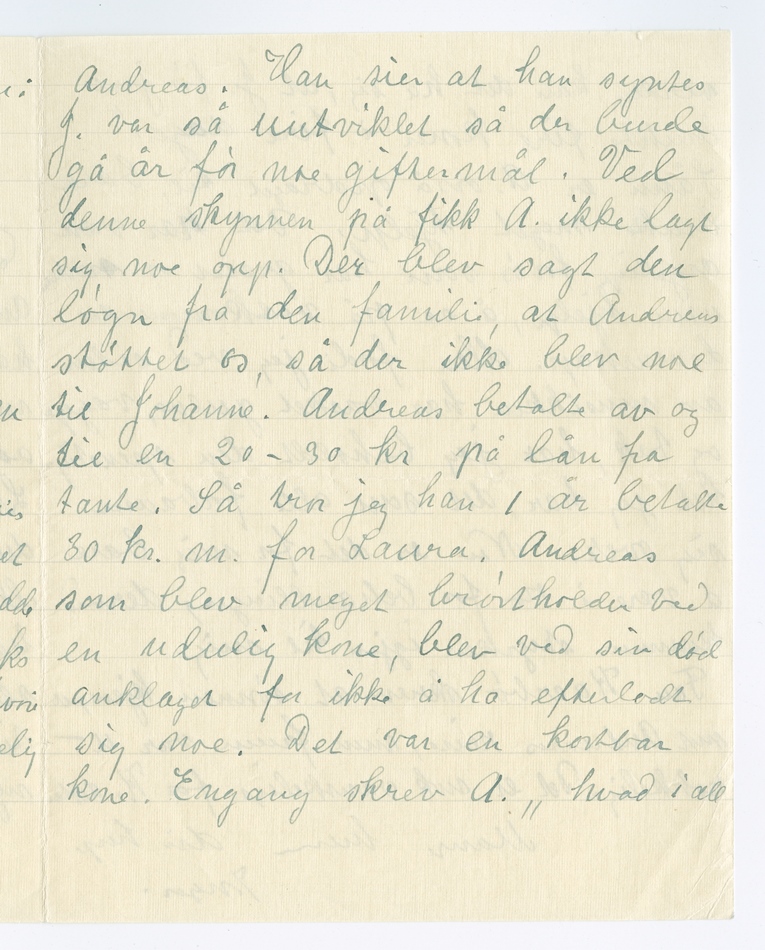 Andreas. Han sier at han syntes
J. var så uutviklet så der burde
gå år før noe giftermål. Ved
denne skynnen på fikk A. ikke lagt
sig noe opp. Der blev sagt den
løgn fra den familie, at Andreas
støttet os, så der ikke blev noe
til Johanne. Andreas betalte av og
til en 20-30 kr på lån fra
tante. Så tror jeg han 1 år betalte
30 kr. m. for Laura. Andreas
som blev meget
en udulig kone, blev ved sin død
anklaget for ikke å ha efterladt
sig noe. Det var en kostbar
kone. Engang skrev A. „ hvad i all